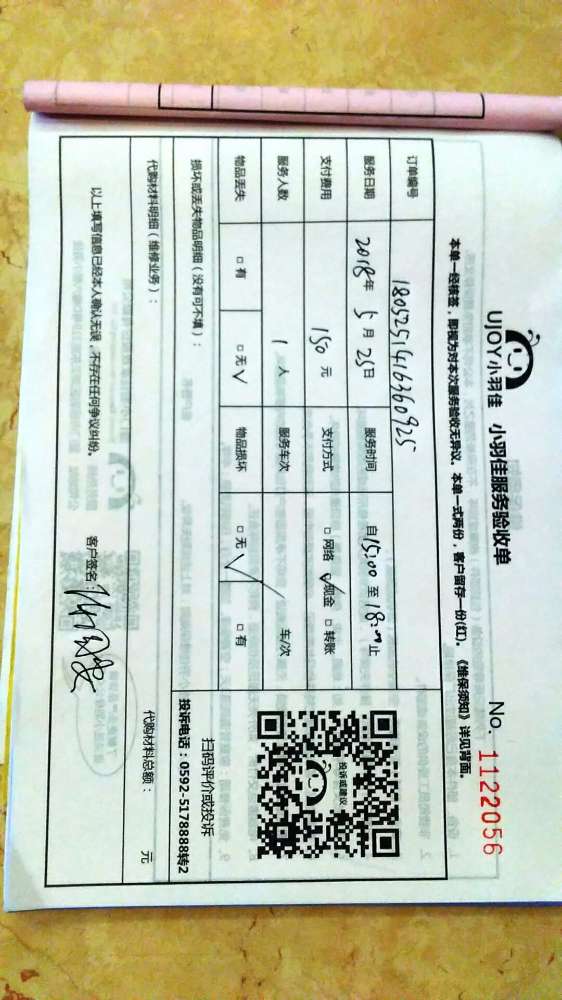 UJOY小羽佳 小羽佳服务验收单 No. 1122056
本单一经核签，即视为对本次服务验收无异议。本单一式两份，客户留存一份(红)。《维保须知》详见背面。
订单编号 1805251416360925
服务日期 2018年 5月 25日 服务时间 自15:00 至 18:00 止
支付费用 150 元 支付方式 □ 网络 ☑ 现金 □ 转账
服务人数 1 人 服务车次 / 车/次
物品丢失 □ 有 □ 无 √ 物品损坏 □ 无 √ □ 有
损坏或丢失物品明细（没有可不填）：
投诉或建议
扫码评价或投诉
投诉电话：0592-5178888转2
代购材料明细（维修业务）： 代购材料总额： 元
以上填写信息已经本人确认无误，不存在任何争议纠纷。 客户签名：